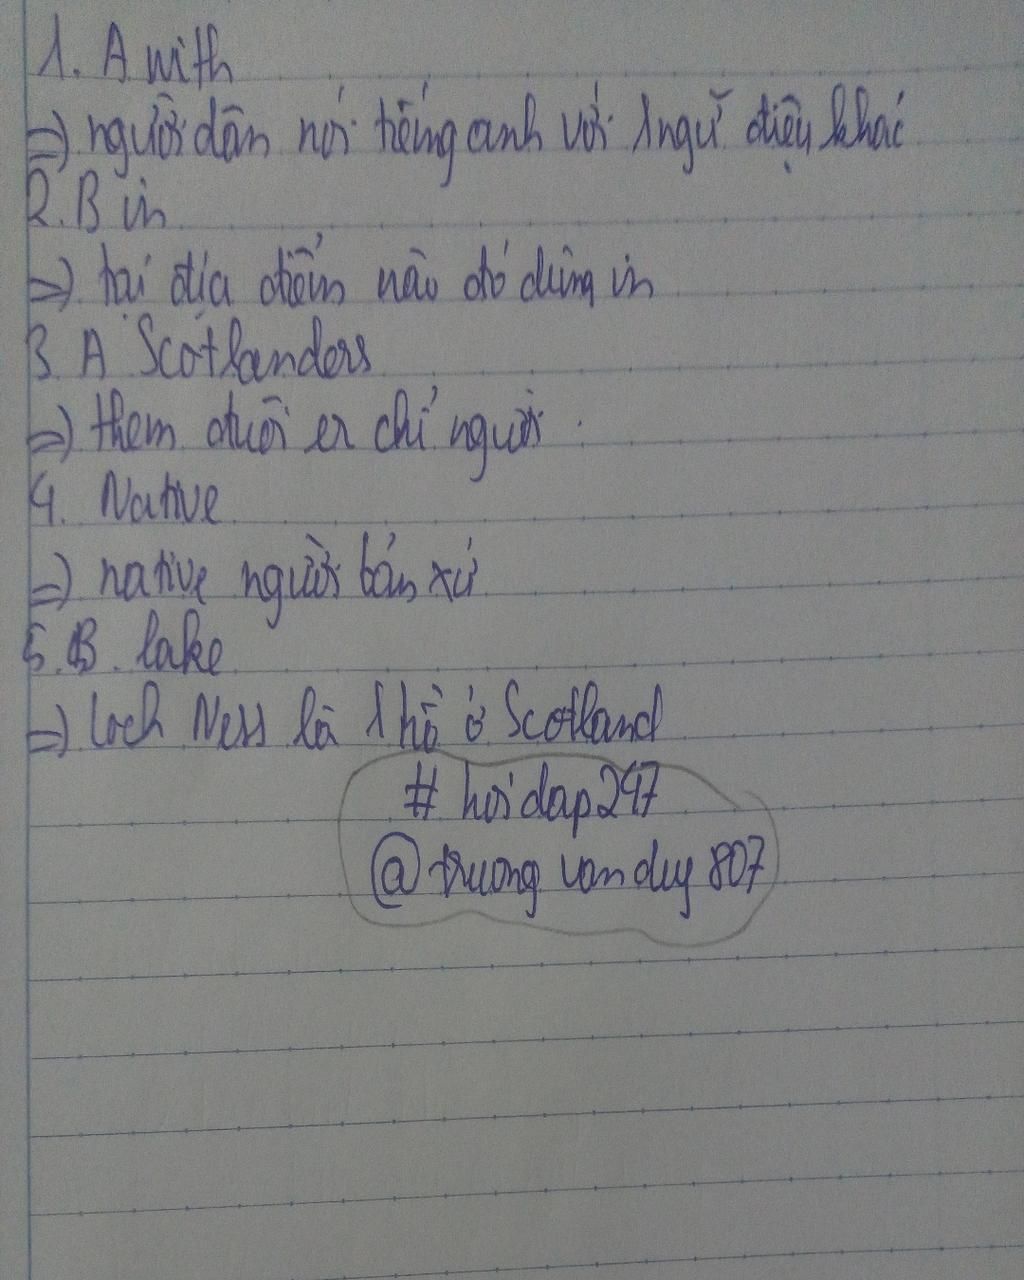 1. A with
=> người dân nói tiếng anh với 1 ngữ điệu khác
2. B in
=> tại địa điểm nào đó dùng in
3. A Scotlanders
=> them đuôi er chỉ người.
4. Native
=> native người bản xứ
5. B. lake
=> Loch Ness là 1 hồ ở Scotland
# hoidap247
@truongvanduy807